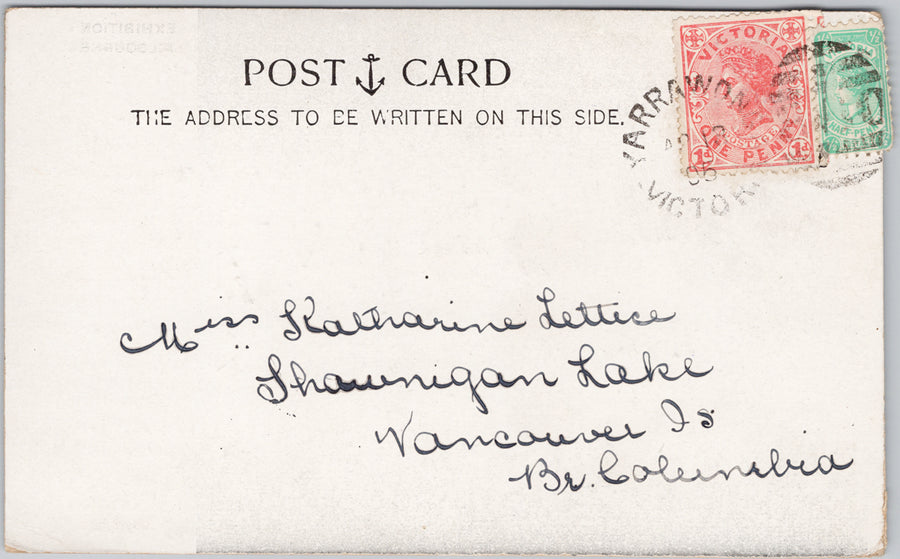 POST CARD
THE ADDRESS TO BE WRITTEN ON THIS SIDE.
VICTORIA
POSTAGE
ONE PENNY
1d 1d
½
HALF-PENNY
YARRAWON
VICTOR
Miss Katharine Lettice
Shawnigan Lake
Vancouver Is
Br. Columbia